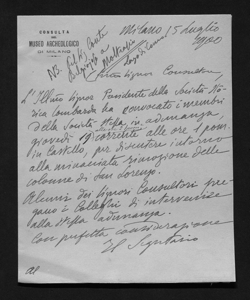 CONSULTA
DEL
MUSEO ARCHEOLOGICO
DI MILANO
Milano 15 Luglio
NB.
Signor Consultore,
L'Illmo Signor Presidente della Società Sto-
rica lombarda ha convocato i membri
della Società stessa in adunanza,
giovedì 19 corrente alle ore 1 pom.
in Castello, per discutere intorno
alla minacciata rimozione delle
colonne di San Lorenzo.
Alcuni dei Signori Consultori pre-
gano i Colleghi di intervenire
alla stessa adunanza.
Con perfetta considerazione
Il Segretario